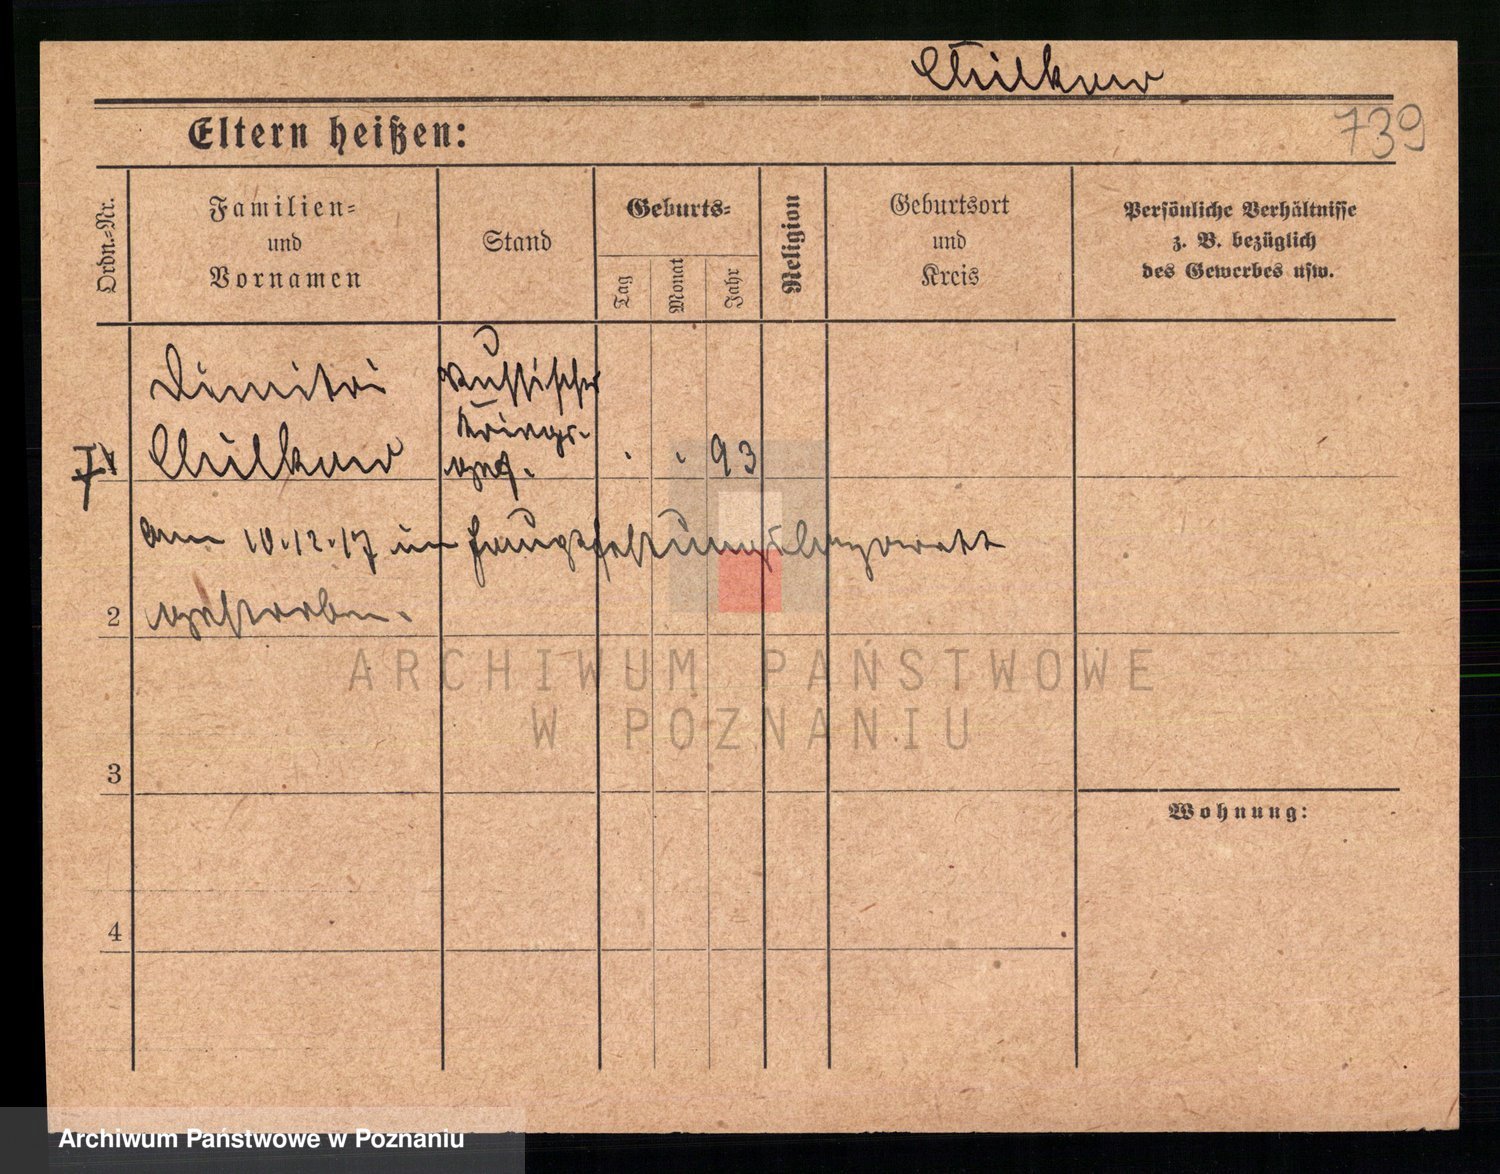 Chilkow
739
Eltern heißen:
Ordn.-Nr.
Familien-
und
Vornamen
Stand
Geburts-
Tag
Monat
Jahr
Religion
Geburtsort
und
Kreis
Persönliche Verhältnisse
z. B. bezüglich
des Gewerbes usw.
Dimitri
Russischer
Kriegs-
Chilkow
gef.
. . 93
am 10.12.17 im Hauptfestungslazarett
2
gestorben.
ARCHIWUM PAŃSTWOWE
W POZNANIU
3
Wohnung:
4
Archiwum Państwowe w Poznaniu